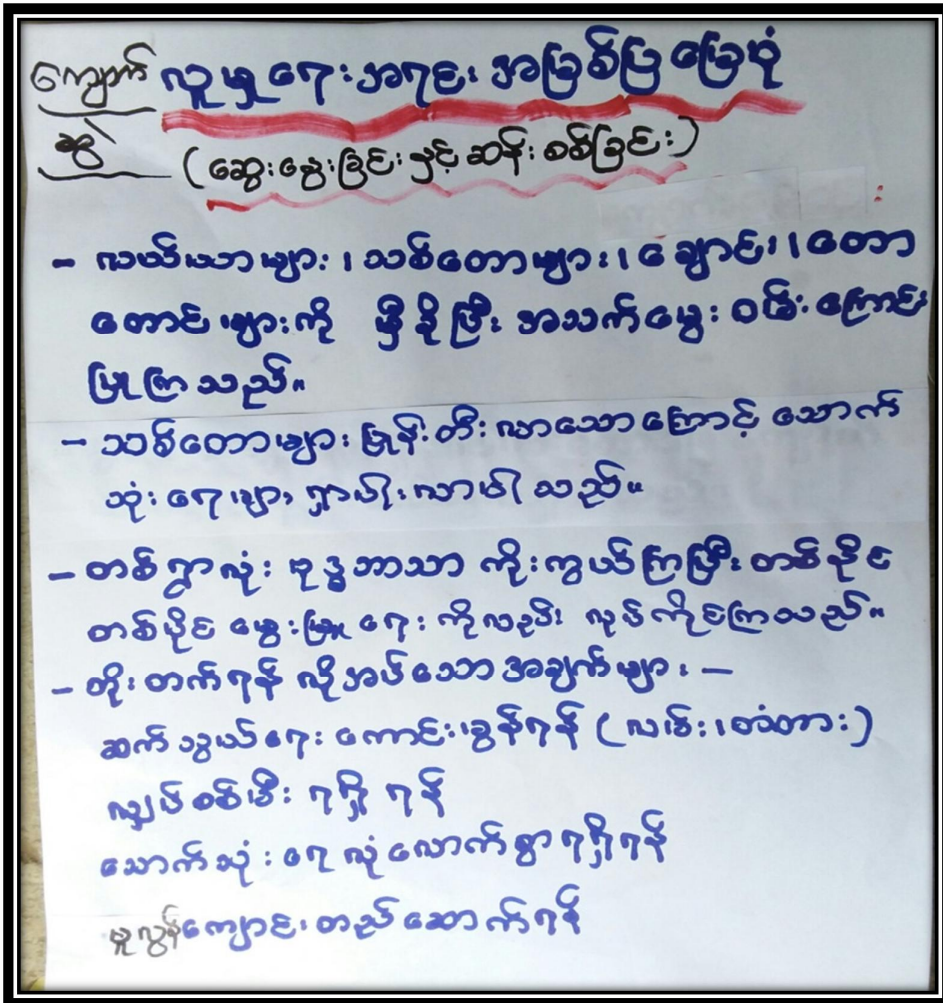 ကျောက် လူမှုရေးအရင်း အမြစ်ပြ မြေပုံ
ဆွဲ (ဆွေးနွေးခြင်းနှင့် ဆန်းစစ်ခြင်း)
- လယ်ယာများ၊ သစ်တောများ၊ ချောင်း၊ တော
တောင်များကို မှီခိုပြီး အသက်မွေး ဝမ်းကြောင်း
ပြုကြသည်။
- သစ်တောများ ပြုန်းတီးလာသောကြောင့် သောက်
သုံးရေများ ရှားပါးလာပါသည်။
- တစ်ရွာလုံး ဗုဒ္ဓဘာသာ ကိုးကွယ်ကြပြီး တစ်နိုင်
တစ်ပိုင် မွေးမြူရေးကိုလည်း လုပ်ကိုင်ကြသည်။
- တိုးတက်ရန် လိုအပ်သောအချက်များ -
ဆက်သွယ်ရေး ကောင်းမွန်ရန် (လမ်း၊တံတား)
လျှပ်စစ်မီး ရရှိရန်
သောက်သုံးရေ လုံလောက်စွာရရှိရန်
မူလွန်ကျောင်းတည်ဆောက်ရန်